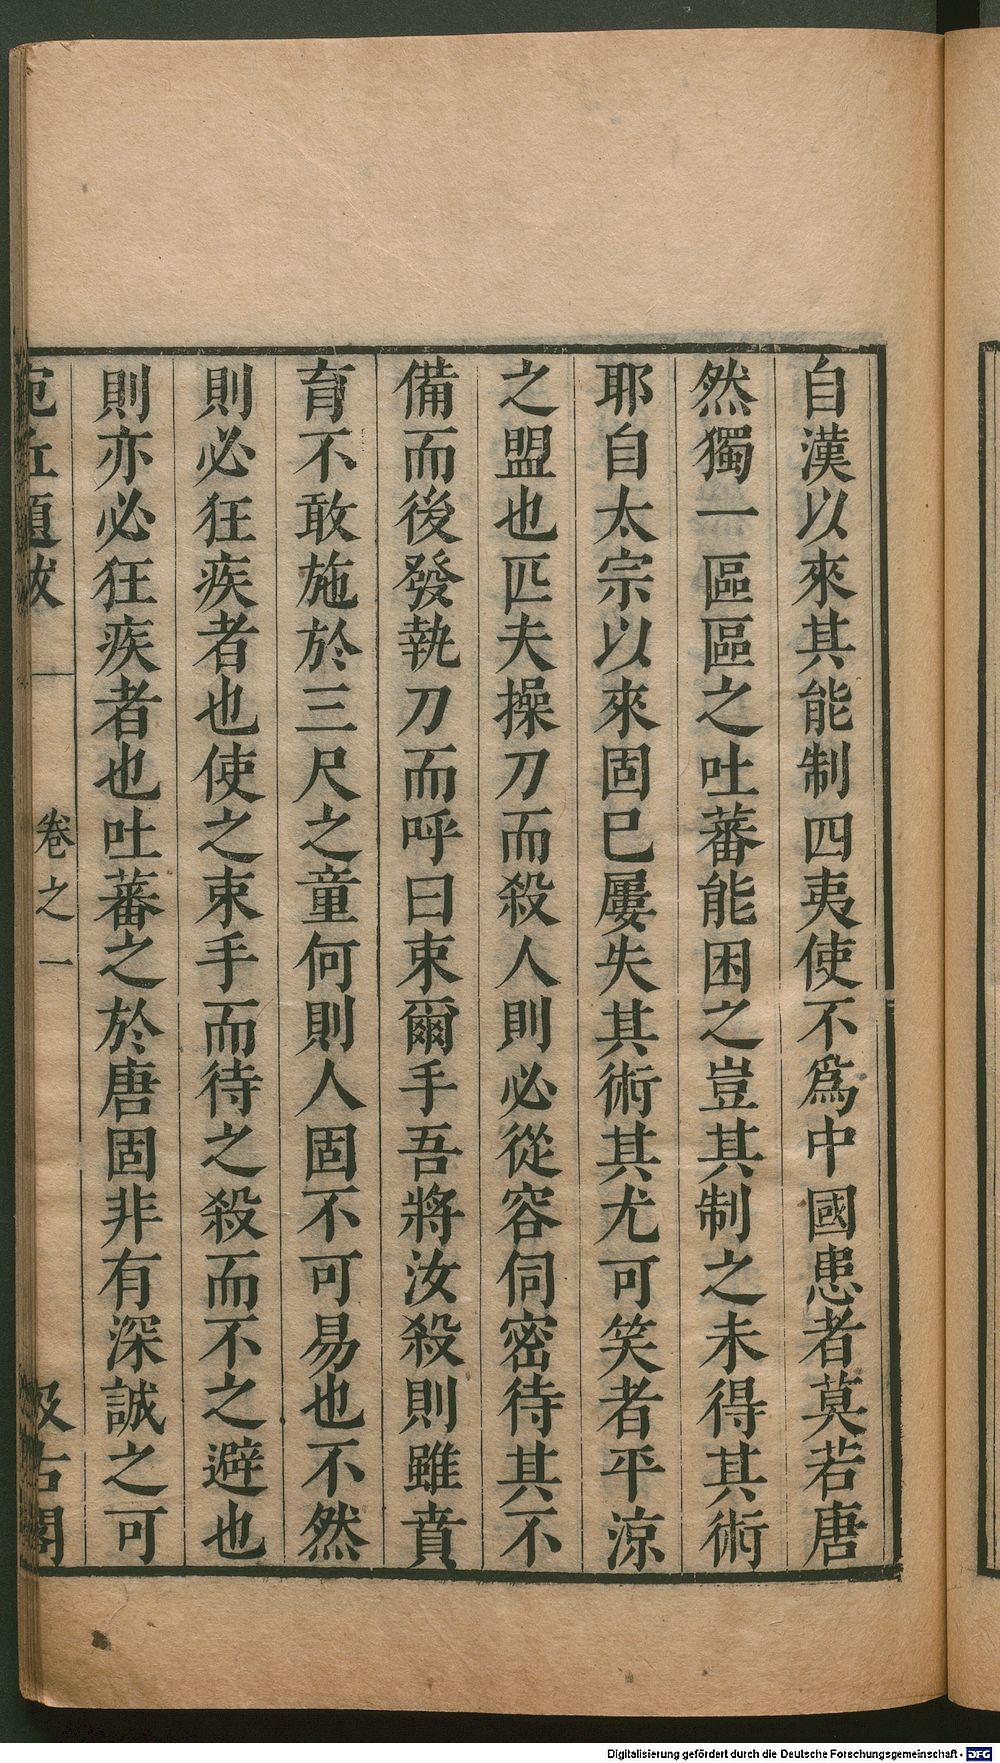 自漢以來其能制四夷使不爲中國患者莫若唐
然獨一區區之吐蕃能困之豈其制之未得其術
耶自太宗以來固已屢失其術其尤可笑者平涼
之盟也匹夫操刀而殺人則必從容伺密待其不
備而後發執刀而呼曰束爾手吾將汝殺則雖賁
育不敢施於三尺之童何則人固不可易也不然
則必狂疾者也使之束手而待之殺而不之避也
則亦必狂疾者也吐蕃之於唐固非有深誠之可
宛丘題跋 卷之一 汲古閣
Digitalisierung gefördert durch die Deutsche Forschungsgemeinschaft - DFG